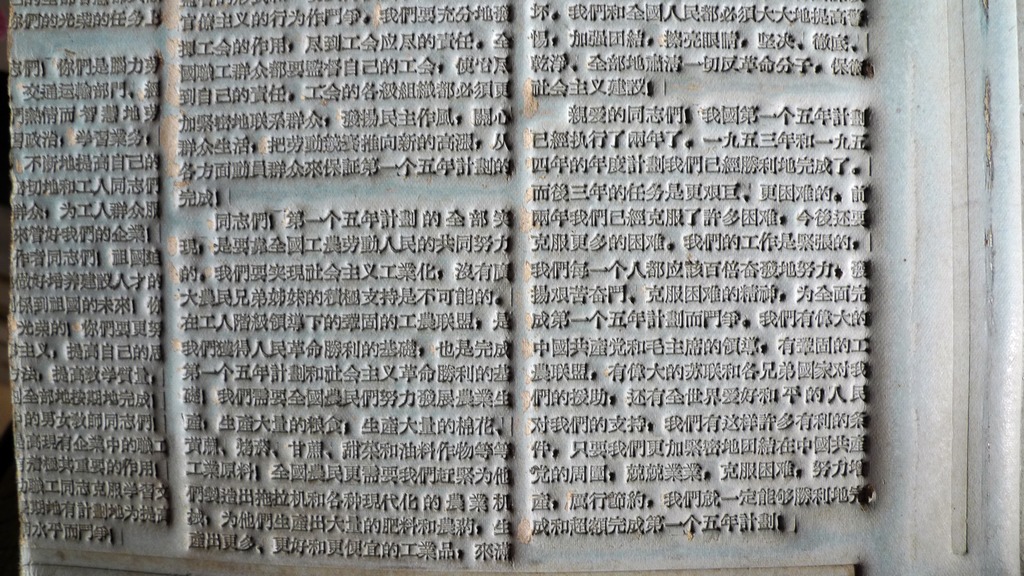 你們的光榮的任务上
們！你們是腦力劳
交通运輸部門、經
們热情而智慧地劳
習政治，学習業务，
不断地提高自己的
密切地和工人同志們
群众，为工人群众服
來管好我們的企業！
作者同志們！祖國迫
做好培养建設人才的
係到祖國的未來！你
光榮的！你們要更努
主义，提高自己的思
方法，提高教学質量，
國全部地按期地完成
的男女教师同志們！
提高現有企業中的職工
有着極其重要的作用，
職工同志克服学習文
長期地有計划地为提高
的水平而鬥爭！
官僚主义的行为作鬥爭。我們要充分地發
揮工会的作用，尽到工会应尽的責任。全
國職工群众都要監督自己的工会，使它尽
到自己的責任。工会的各級組織都必須更
加緊密地联系群众，發揚民主作風，關心
群众生活，把劳动競賽推向新的高潮，从
各方面動員群众來保証第一个五年計劃的
完成！
同志們！第一个五年計劃的全部实
現，是要靠全國工農劳動人民的共同努力
的。我們要实現社会主义工業化，沒有廣
大農民兄弟姊妹的積極支持是不可能的。
在工人階級領導下的鞏固的工農联盟，是
我們獲得人民革命勝利的基礎，也是完成
第一个五年計劃和社会主义革命勝利的基
礎！我們需要全國農民們努力發展農業生
產，生產大量的粮食，生產大量的棉花、
黃蔴、烤菸、甘蔗、甜菜和油料作物等等
工業原料！全國農民更需要我們赶緊为他
們制造出拖拉机和各种現代化的農業机
械，为他們生產出大量的肥料和農葯，生
產出更多、更好和更便宜的工業品，來滿
坏，我們和全國人民都必須大大地提高警
惕，加强团結，擦亮眼睛，坚决、徹底、
乾淨、全部地肅清一切反革命分子，保衛
社会主义建設！
親愛的同志們！我國第一个五年計劃
已經执行了兩年了。一九五三年和一九五
四年的年度計劃我們已經勝利地完成了。
而後三年的任务是更艰巨、更困难的。前
兩年我們已經克服了許多困难，今後还要
克服更多的困难。我們的工作是緊張的，
我們每一个人都应該百倍奋發地努力，發
揚艰苦奋鬥、克服困难的精神，为全面完
成第一个五年計劃而鬥爭。我們有偉大的
中國共產党和毛主席的領導，有鞏固的工
農联盟，有偉大的苏联和各兄弟國家对我
們的援助，还有全世界愛好和平的人民
对我們的支持，我們有这样許多有利的条
件，只要我們更加緊密地团結在中國共產
党的周圍，兢兢業業，克服困难，努力增
產，厲行節約，我們就一定能够勝利地完
成和超額完成第一个五年計劃！